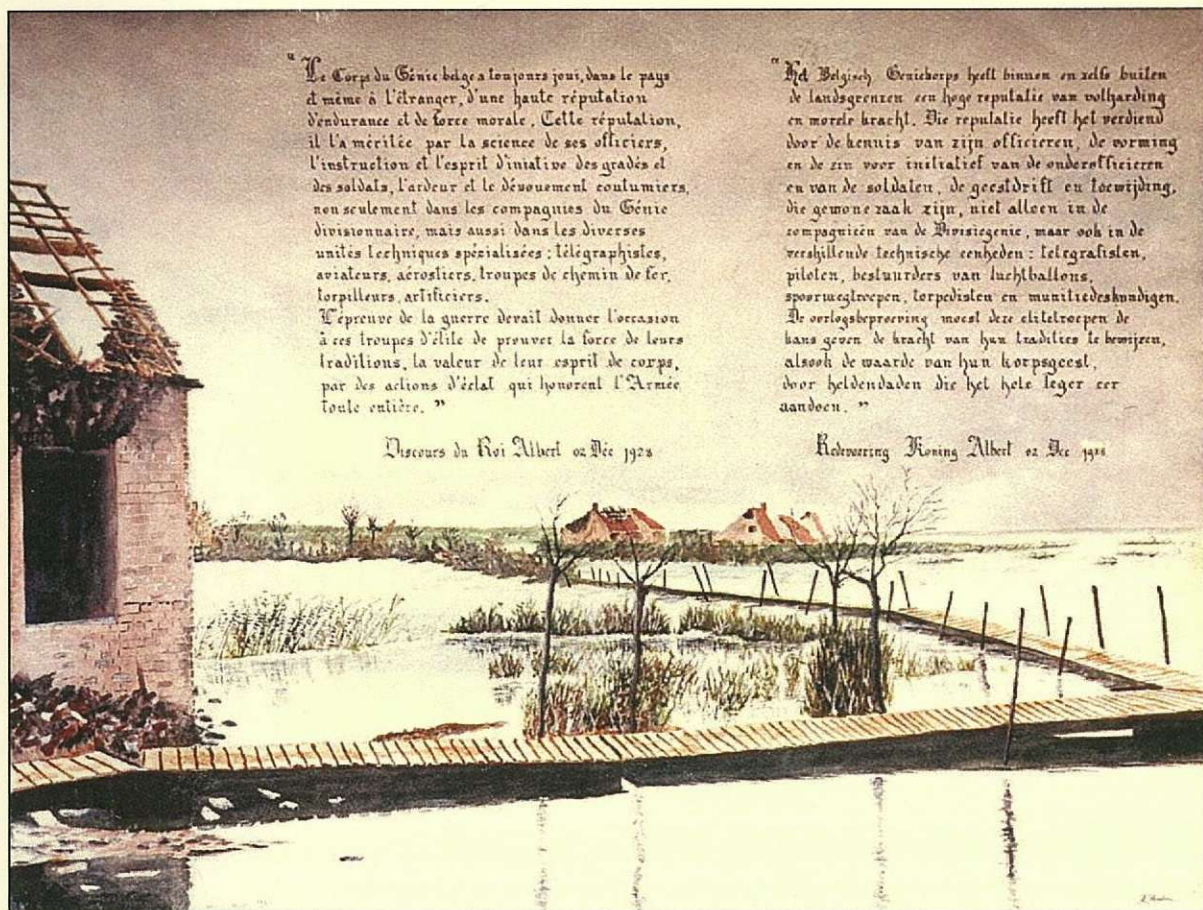 “Le Corps du Génie belge a toujours joui, dans le pays
et même à l'étranger, d'une haute réputation
d'endurance et de force morale. Cette réputation,
il l'a méritée par la science de ses officiers,
l'instruction et l'esprit d'iniative des gradés et
des soldats, l'ardeur et le dévouement coutumiers,
non seulement dans les compagnies du Génie
divisionnaire, mais aussi dans les diverses
unités techniques spécialisées : télégraphistes,
aviateurs, aérostiers, troupes de chemin de fer,
torpilleurs, artificiers.
L'épreuve de la guerre devait donner l'occasion
à ces troupes d'élite de prouver la force de leurs
traditions, la valeur de leur esprit de corps,
par des actions d'éclat qui honorent l'Armée
toute entière. ”
Discours du Roi Albert 02 Déc 1928
“Het Belgisch Geniekorps heeft binnen en zelfs buiten
de landsgrenzen een hoge reputatie van volharding
en morele kracht. Die reputatie heeft het verdiend
door de kennis van zijn officieren, de vorming
en de zin voor initiatief van de onderofficieren
en van de soldaten, de geestdrift en toewijding,
die gewone zaak zijn, niet alleen in de
compagnieën van de Divisiegenie, maar ook in de
vershillende technische eenheden : telegrafisten,
piloten, bestuurders van luchtballons,
spoorwegtroepen, torpedisten en munitiedeskundigen.
De oorlogsbeproeving moest deze elitetroepen de
kans geven de kracht van hun tradities te bewijzen,
alsook de waarde van hun korpsgeest,
door heldendaden die het hele leger eer
aandoen. ”
Redevoering Koning Albert 02 Dec 1928